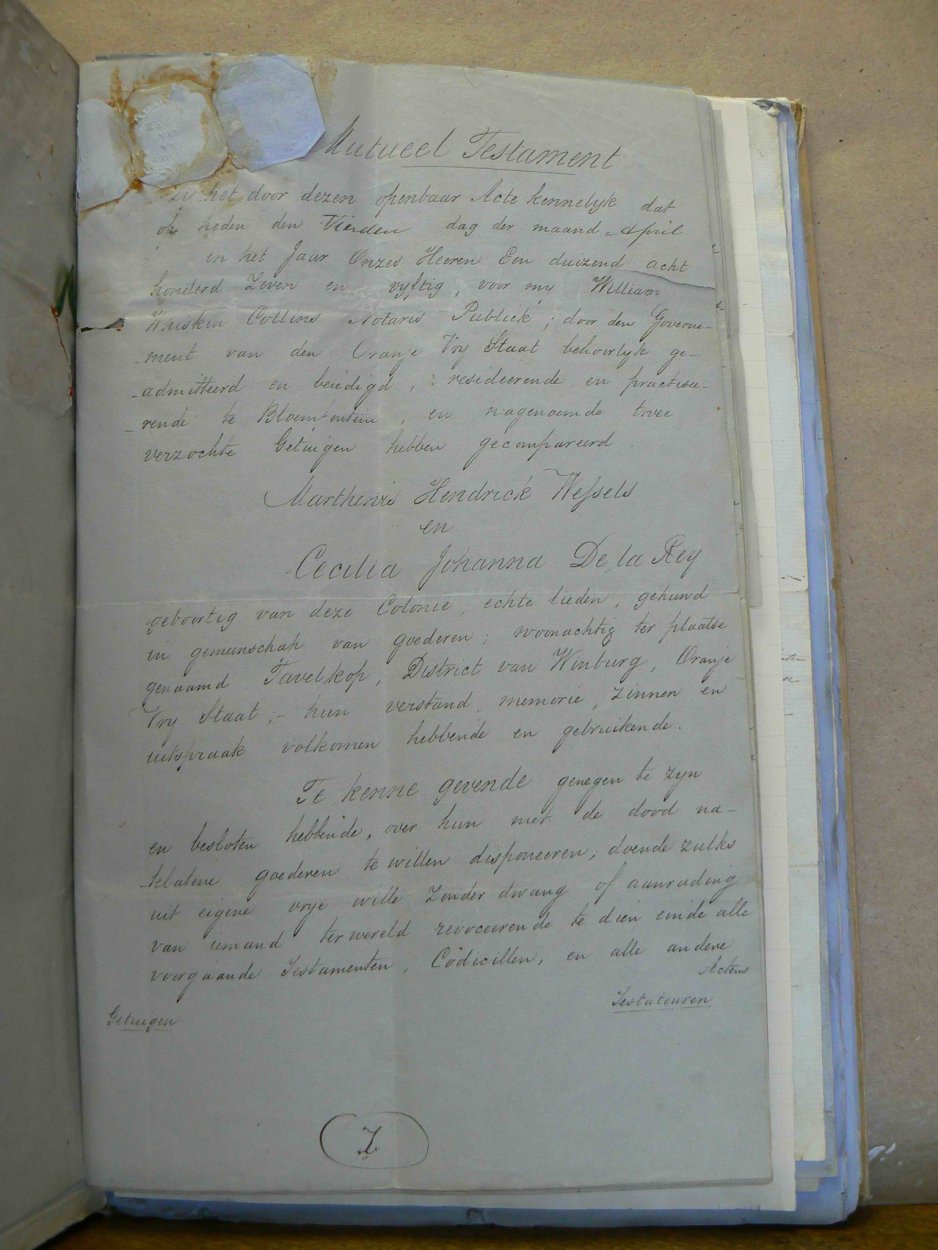 Mutueel Testament
Zy het door dezen openbaar Acte kennelyk dat
op heden den Vierden dag der maand April
in het Jaar Onzes Heeren Een duizend acht
honderd Zeven en vyftig, voor my William
Collins Notaris Publiek; door den Governe-
-ment van den Oranje Vry Staat behoorlyk ge-
-admitteerd en beëdigd, resideerende en practisee-
-rende te Bloemfontein, en nagenoemde twee
verzochte Getuigen hebben gecompareerd.
Marthenis Hendrick Wessels
en
Cecilia Johanna De la Rey
geboortig van deze Colonie, echte lieden, gehuwd
in gemeenschap van goederen; woonachtig ter plaatse
genaamd Tavelkop, District van Winburg, Oranje
Vry Staat; - hun verstand, memorie, zinnen en
uitspraak volkomen hebbende en gebruikende.
Te kenne gevende genegen te zyn
en besloten hebbende, over hun met de dood na-
-telatene goederen te willen disponeeren, doende zulks
uit eigene vrye wille zonder dwang of aanrading
van iemand ter wereld revoceerende te dien einde alle
voorgaande Testamenten, Codicillen, en alle andere
Actens
Getuigen
Testateuren